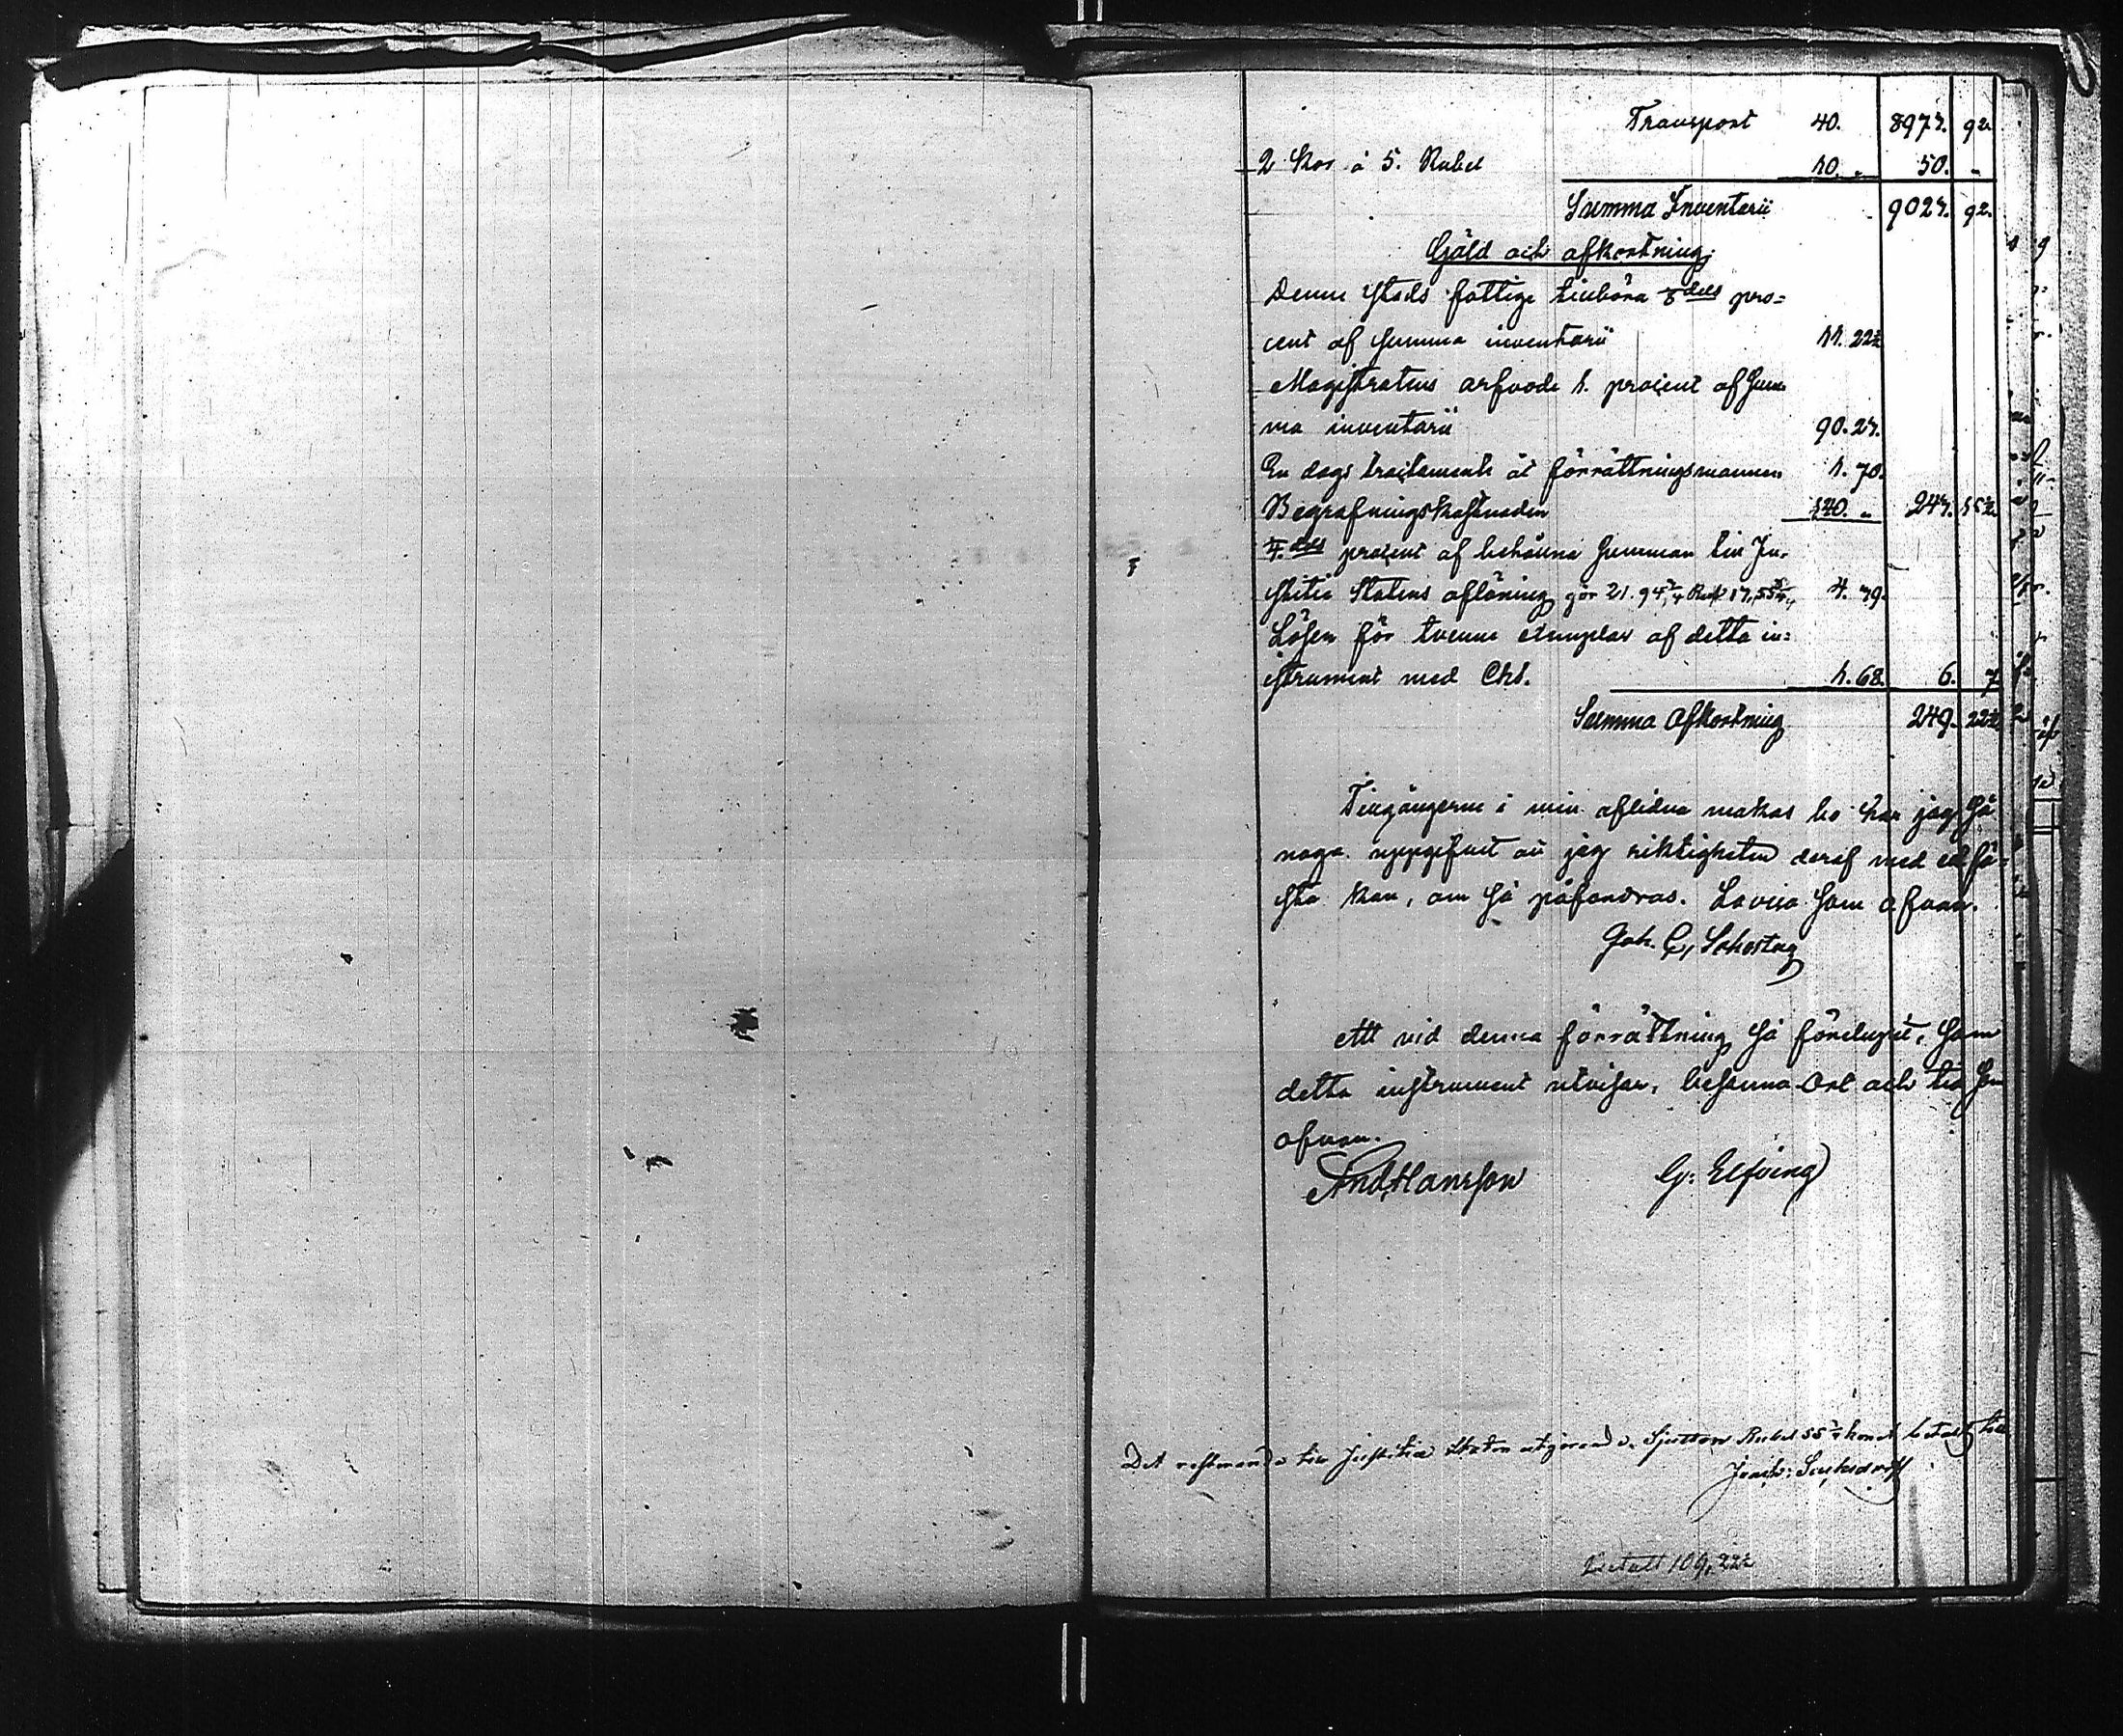 Transport 40. 8977. 92
2 Kor à 5. Rubel 10. „ 50. „
Summa Inventarii 9027. 92.
Gäld och afkortning.
Denne stads fattige tillböra 1/8 dels pro=
cent af summa inventarii 11. 22½
Magistratens arfvode 1. procent af Sum
ma inventarii 90. 27.
En dags tractamente åt förrättningsmannen 1. 70.
Begrafningskostnaden 140. „ 243. 15½
¼ dels procent af behållna summan till Ju-
stitiæ Statens aflöning gör 21. 94¾ 4. 39.
Lösen för tvenne exemplar af detta in=
strument med Chs. 1. 68. 6. 7
Summa Afkortning 249. 22½
Tillgångarne i min aflidna makas bo har jag så
noga uppgifvit att jag riktigheten deraf med ed fä=
sta kan, om så påfordras. Lovisa som ofvan.
Joh. C, Sohestag
Att vid denna förrättning så förelupit, som
detta instrument utvisar, besanna Ort och tid som
ofvan.
And, Hansson G: Elfving
Det resterande till Justitiæ Staten utgörande Sjutton Rubel 55¾ kop betalt till
Joach:
Betalt 109,22½